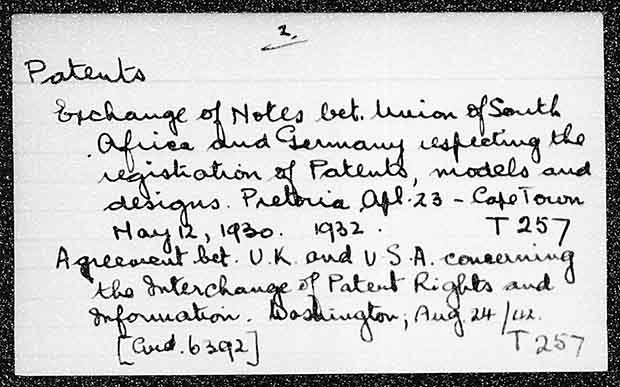 2.
Patents
Exchange of Notes bet. Union of South
Africa and Germany respecting the
registration of Patents, models and
designs. Pretoria Apl. 23 - Cape Town
May 12, 1930. 1932. T 257
Agreement bet. U.K. and U.S.A. concerning
the Interchange of Patent Rights and
Information. Washington, Aug. 24/42.
[Cmd. 6392] T 257